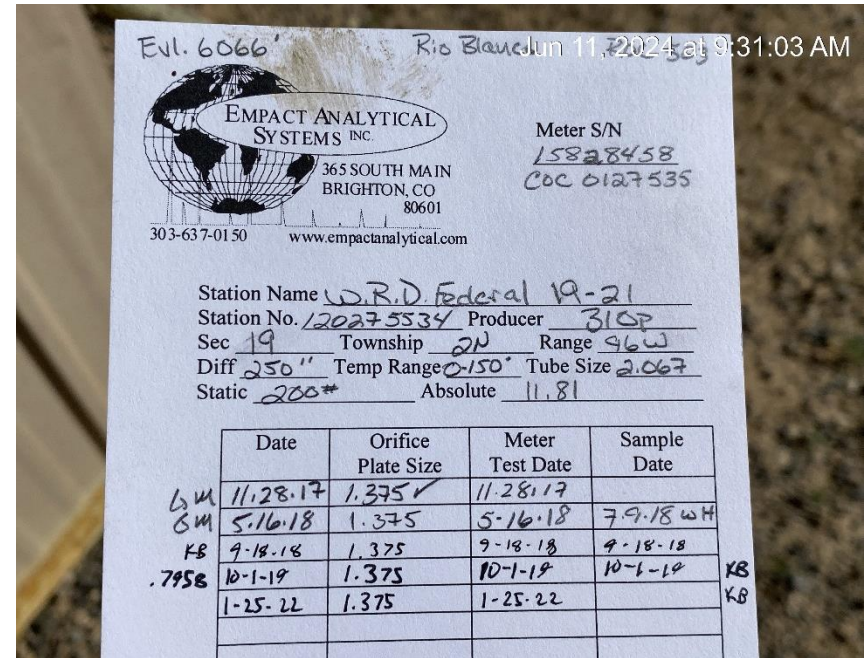 Evl. 6066'
Rio Blanco
Jun 11, 2024 at 9:31:03 AM
EMPACT ANALYTICAL
SYSTEMS INC.
365 SOUTH MAIN
BRIGHTON, CO
80601
303-637-0150 www.empactanalytical.com
Meter S/N
15828458
COC 0127535
Station Name W.R.D. Federal 19-21
Station No. 120275534 Producer 310P
Sec 19 Township 2N Range 96W
Diff 250" Temp Range 0-150° Tube Size 2.067
Static 200# Absolute 11.81
Date Orifice Plate Size Meter Test Date Sample Date
11.28.17 1.375 ✓ 11.28.17
GM 5.16.18 1.375 5-16-18 7.9.18 WH
KB 9-18-18 1.375 9-18-18 9-18-18
.7958 10-1-19 1.375 10-1-19 10-1-19 KB
1-25-22 1.375 1-25-22 KB